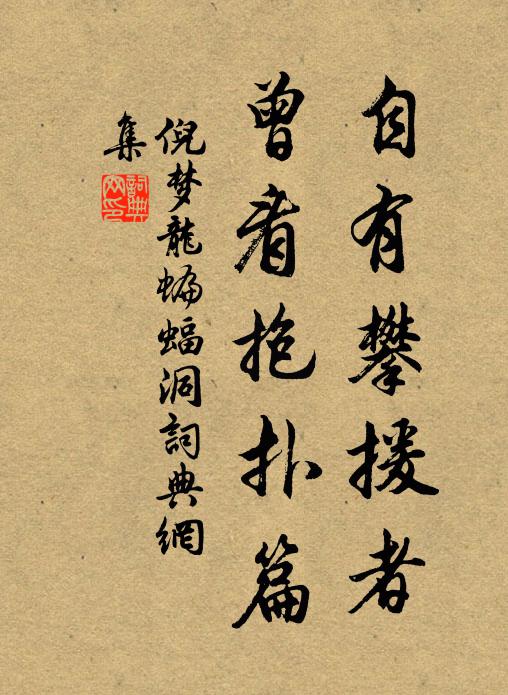 自有攀援者
曾看抱扑篇
倪梦龍蝙蝠洞詞典網
集
詞典
网印